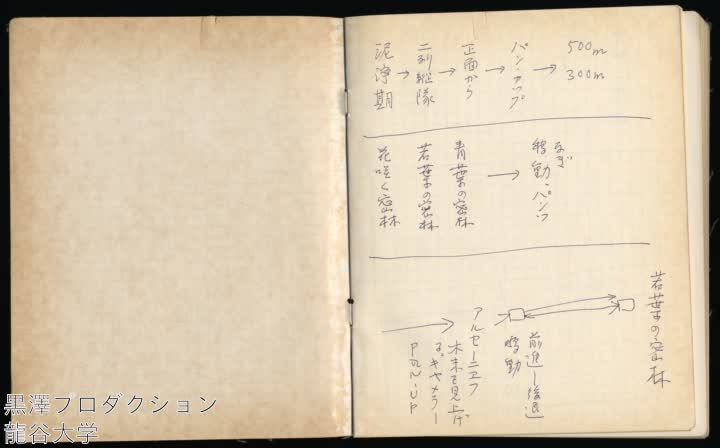 泥浄期→
二列縦隊→
正面から→
パン・アップ→
500m
300m
花咲く密林
若葉の密林
青葉の密林→
移動・パンツ
若葉の密林
アルセーニエフ
木末を見上げ
キャメラー
PAN-UP
前進し後退
移動
黒澤プロダクション
龍谷大学